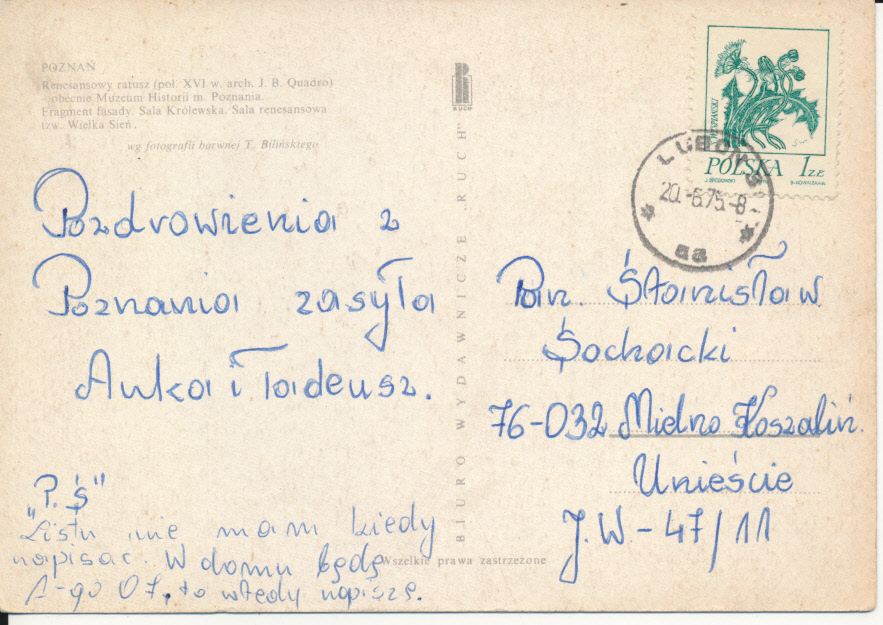 POZNAŃ
Renesansowy ratusz (poł. XVI w. arch. J. B. Quadro)
— obecnie Muzeum Historii m. Poznania.
Fragment fasady. Sala Królewska. Sala renesansowa
tzw. Wielka Sień.
wg fotografii barwnej T. Bilińskiego
Pozdrowienia z
Poznania zasyła
Anka i Tadeusz.
"P. Ś"
Listu nie mam kiedy
napisać. W domu będę
1-go 07, to wtedy napiszę.
RUCH
BIURO WYDAWNICZE „RUCH”
Wszelkie prawa zastrzeżone
WYSPIAŃSKI
POLSKA 1 ZŁ
20.-6.75.-8
aa
Pan. Stanisław.
Sochacki
76-032 Mielno Koszalin.
Unieście
J.W-47/11